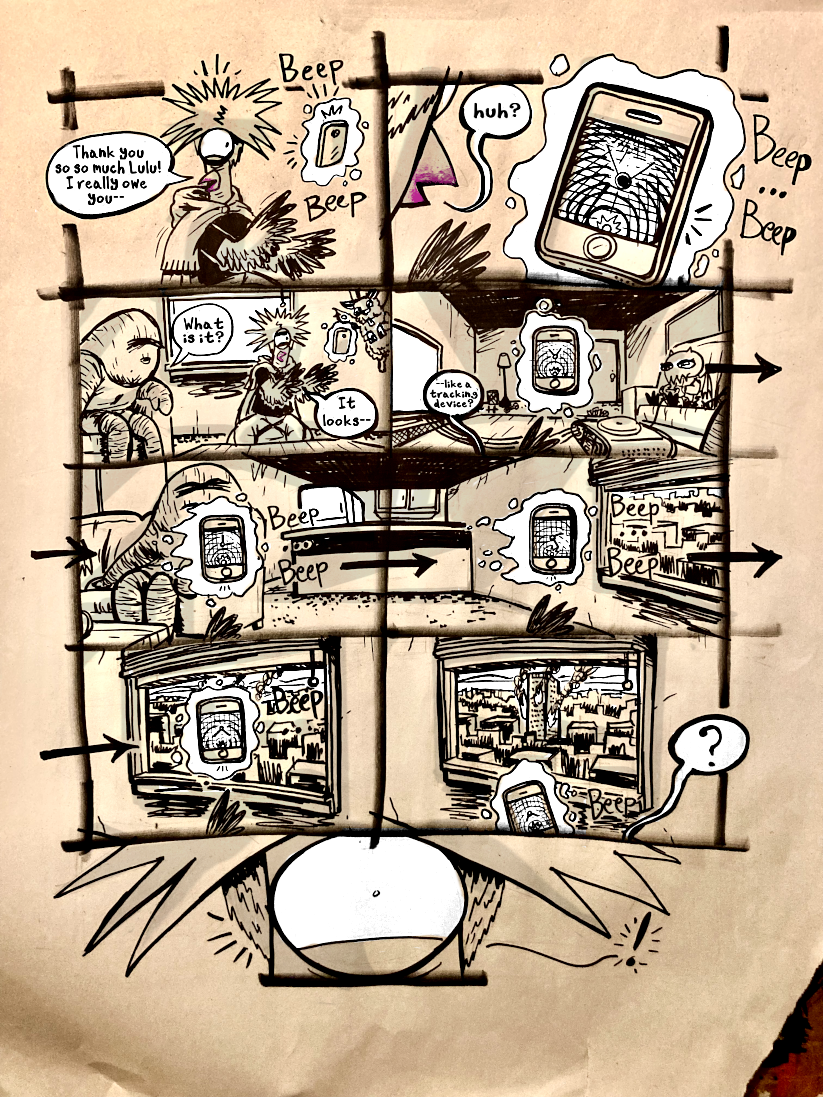 Beep
Thank you
so so much Lulu!
I really owe
you--
Beep
huh?
Beep
...
Beep
What
is it?
It
looks--
--like a
tracking
device?
Beep
...
Beep
Beep
...
Beep
Beep
Beep
?
!